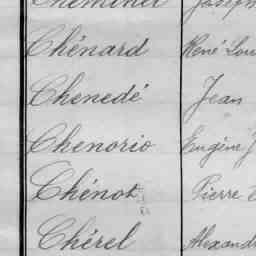 Chénard René Lou
Chenedé Jean
Chenorio Eugène J
Chénot Pierre
Chérel Alexand